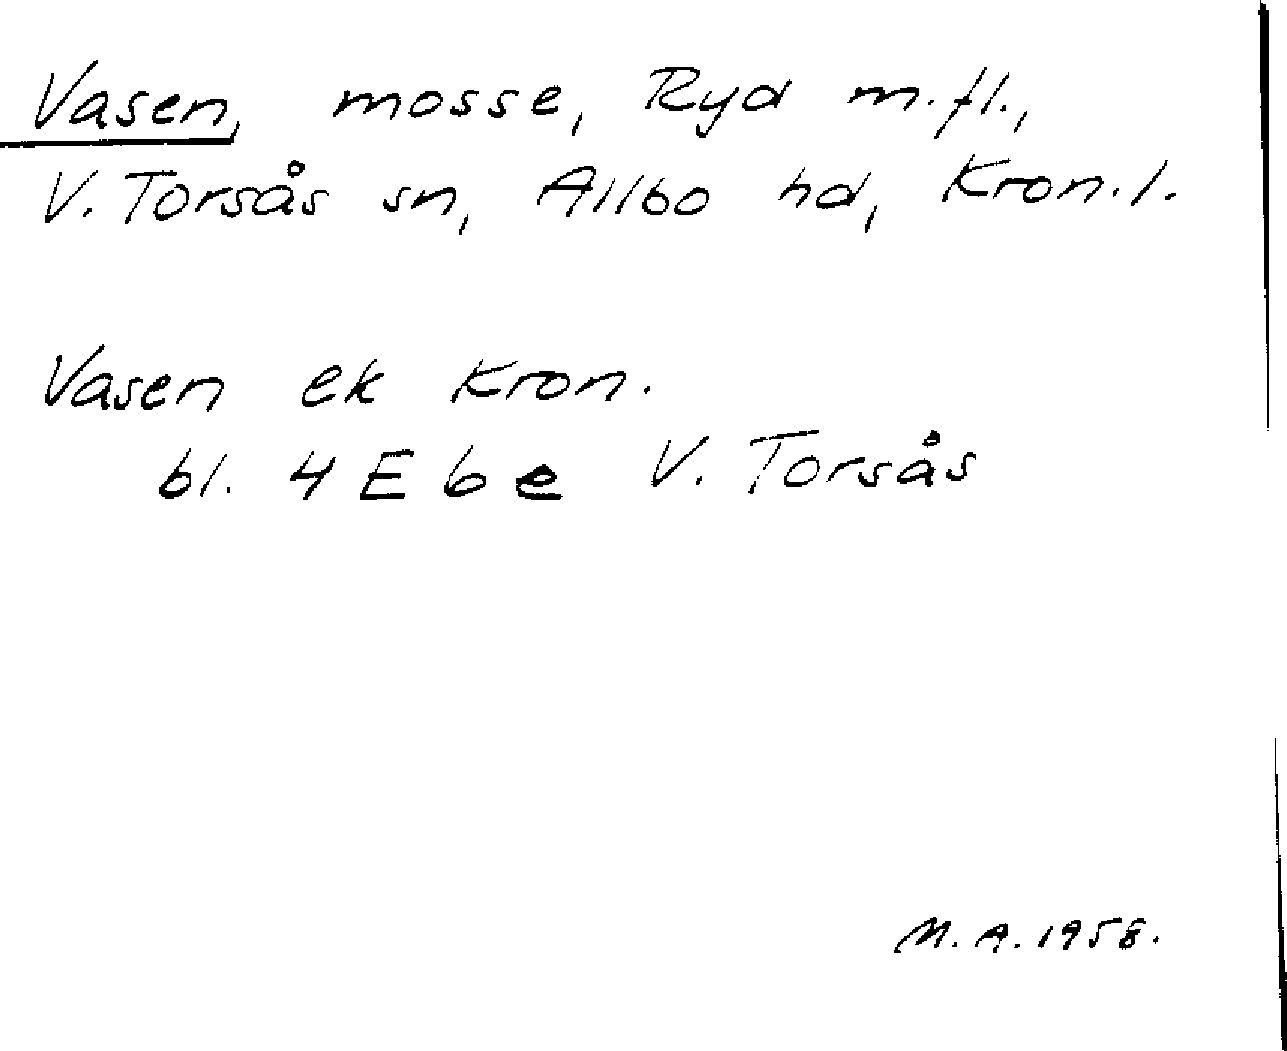 Vasen, mosse, Ryd m.fl.,
V. Torsås sn, Allbo hd, Kron.l.
Vasen ek Kron.
bl. 4 E 6 e V. Torsås
M. A. 1958.